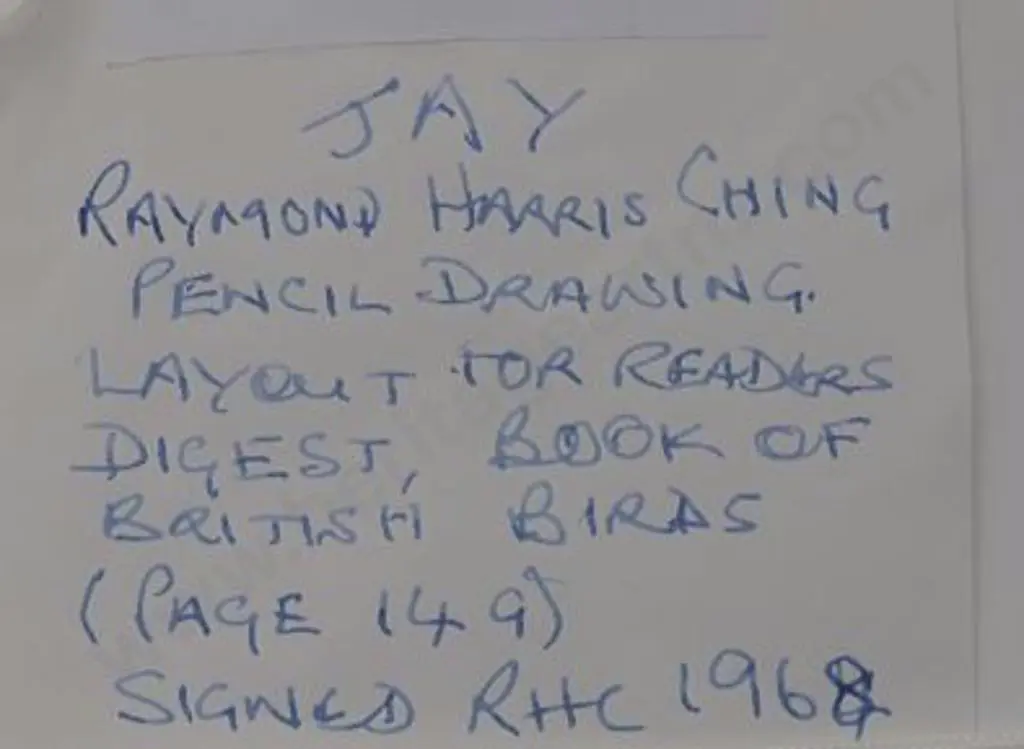 JAY
RAYMOND HARRIS CHING
PENCIL DRAWING.
LAYOUT FOR READERS
DIGEST, BOOK OF
BRITISH BIRDS
(PAGE 149)
SIGNED RHC 1968